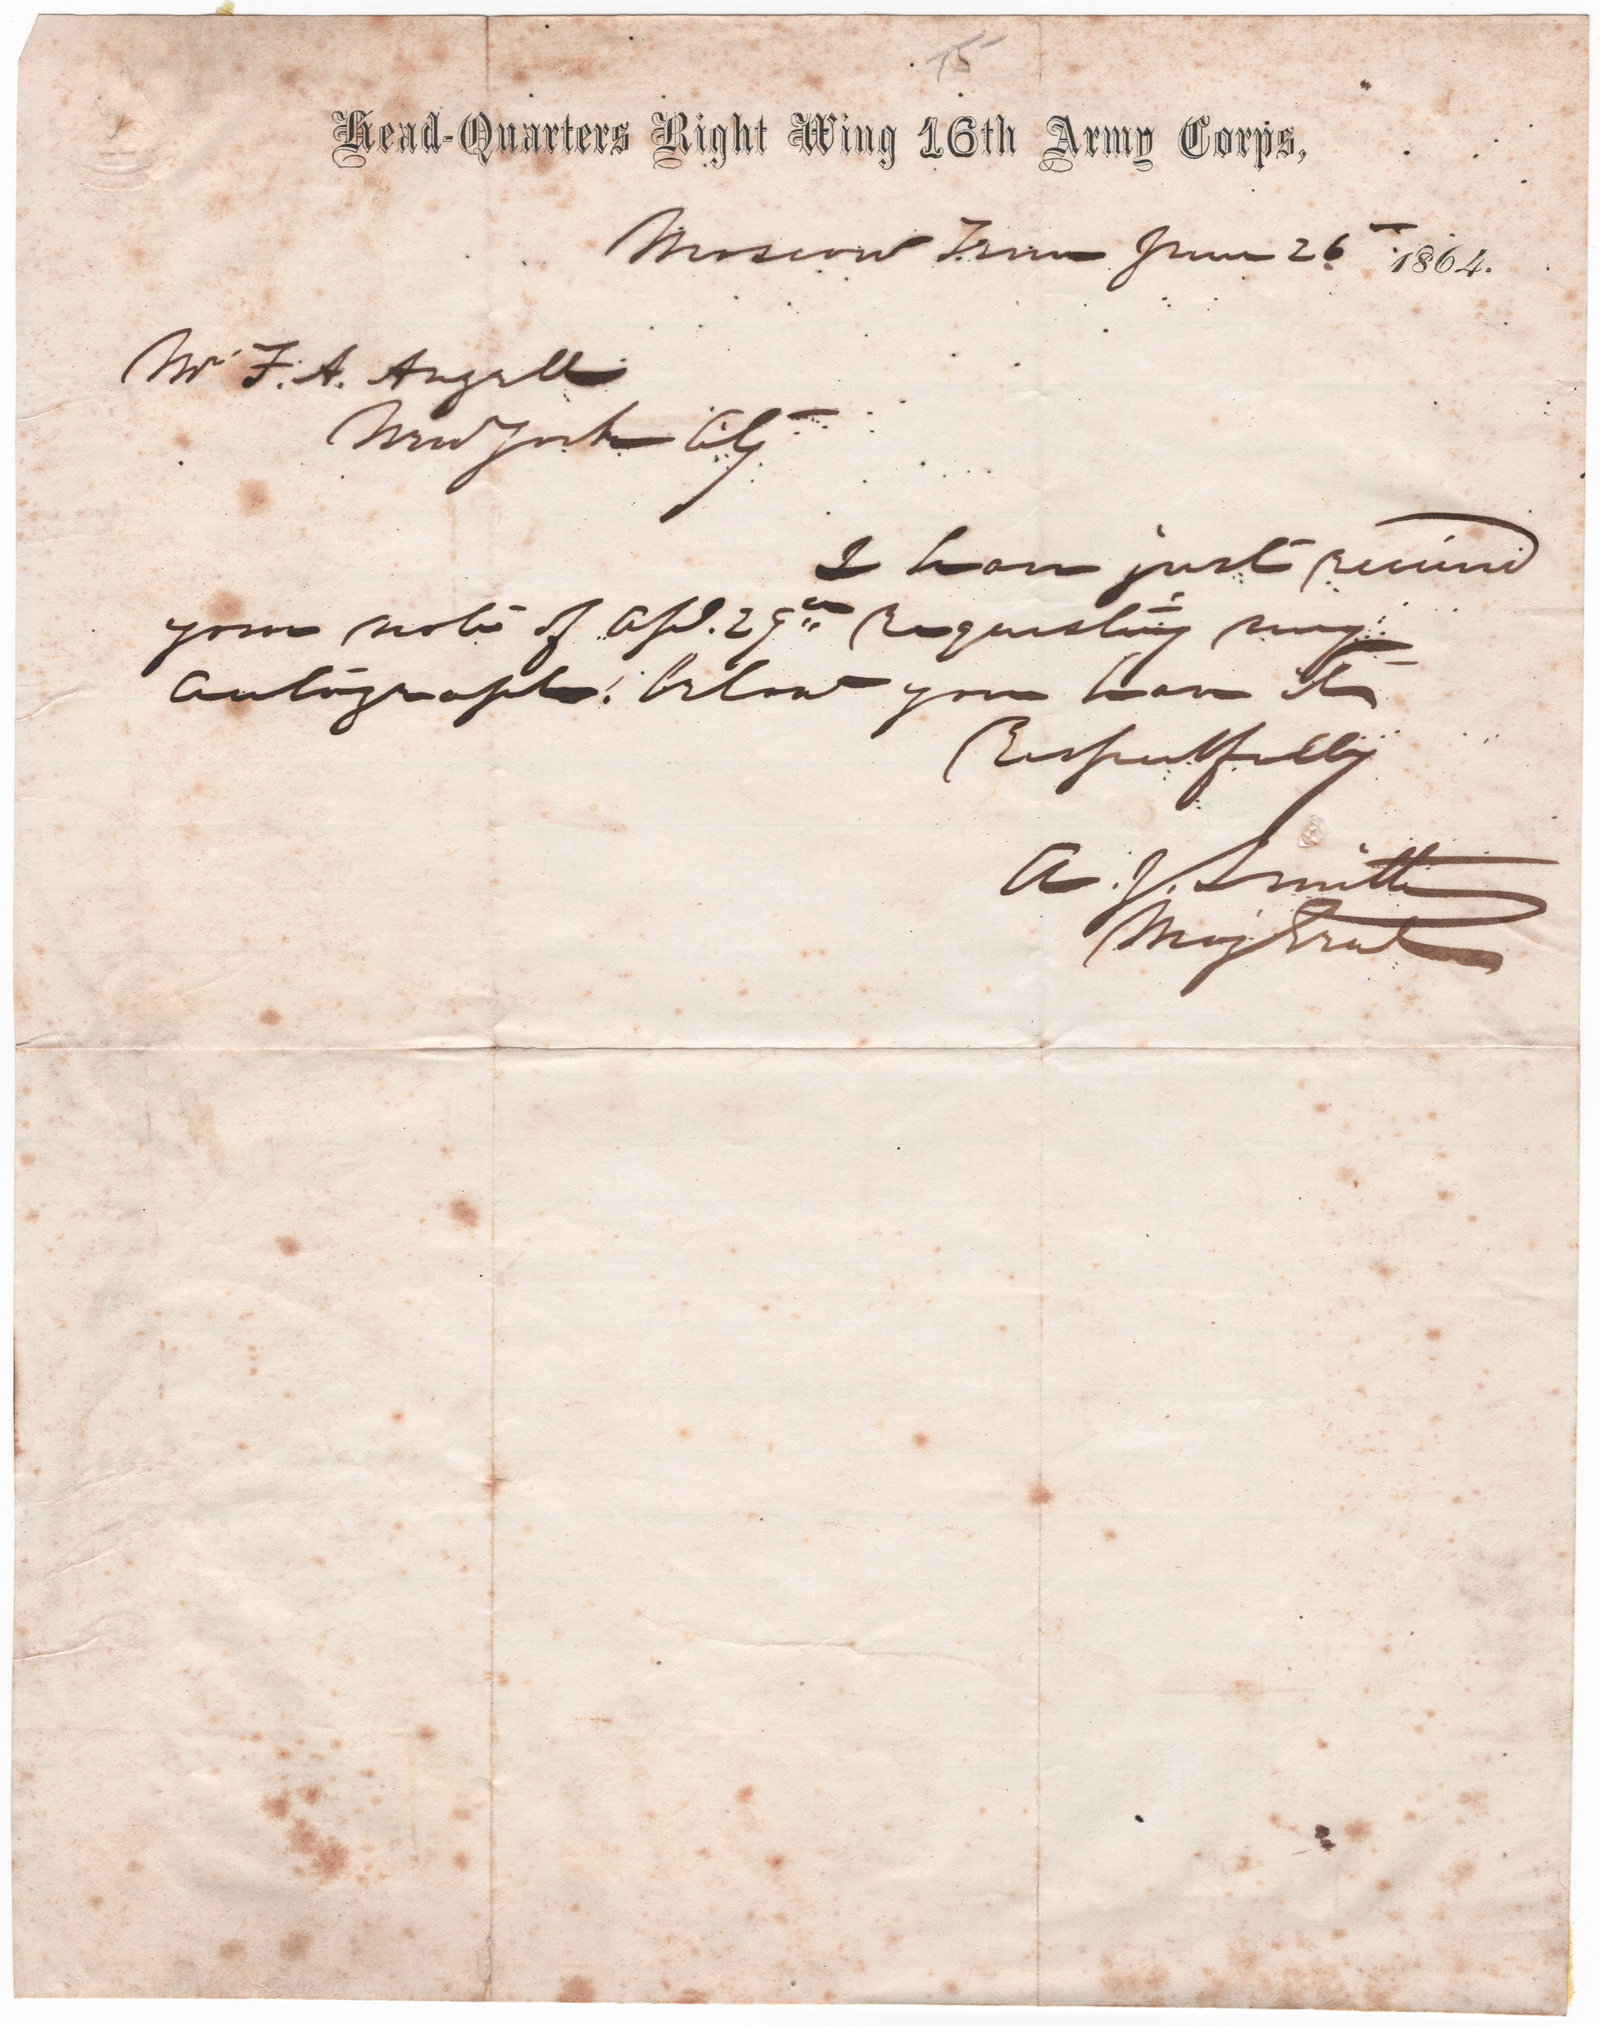 75
Head-Quarters Right Wing 16th Army Corps,
Moscow Tenn June 26th 1864.
Mr F. A. Angell
New York City
I have just received
your note of Apl. 29th Requesting my
Autograph: below you have it
Respectfully
A. J. Smith
Maj Genl